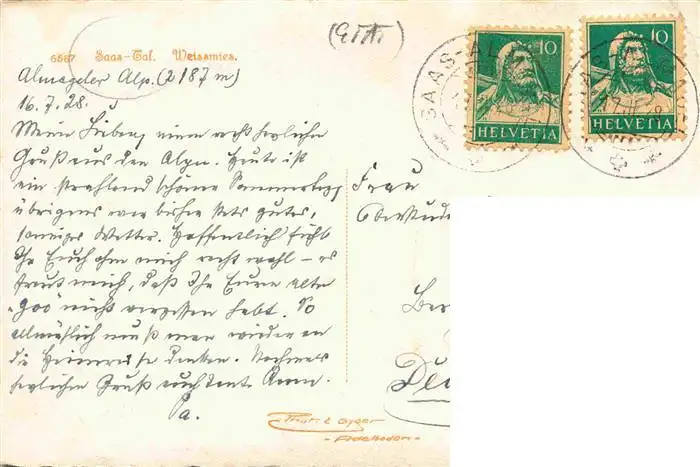 6587 Saas-Tal. Weissmies.
Almageler Alp. (2187 m)
16.7.28.
Meine Lieben, einen recht herzlichen
Gruß aus den Alpen. Heute ist
ein strahlend schöner Sommertag,
übrigens war bisher stets gutes,
sonniges Wetter. Hoffentlich fühlt
Ihr Euch ohne mich recht wohl – es
freut mich, daß Ihr Eure alte
nicht vergessen habt. So
allmählich muß man wieder an
die Heimreise denken. Nochmals
herzlichen Gruß
Frau
Ber
Deu
10
HELVETIA
10
HELVETIA
SAAS-AL
Phot. E. Gyger
-Adelboden-